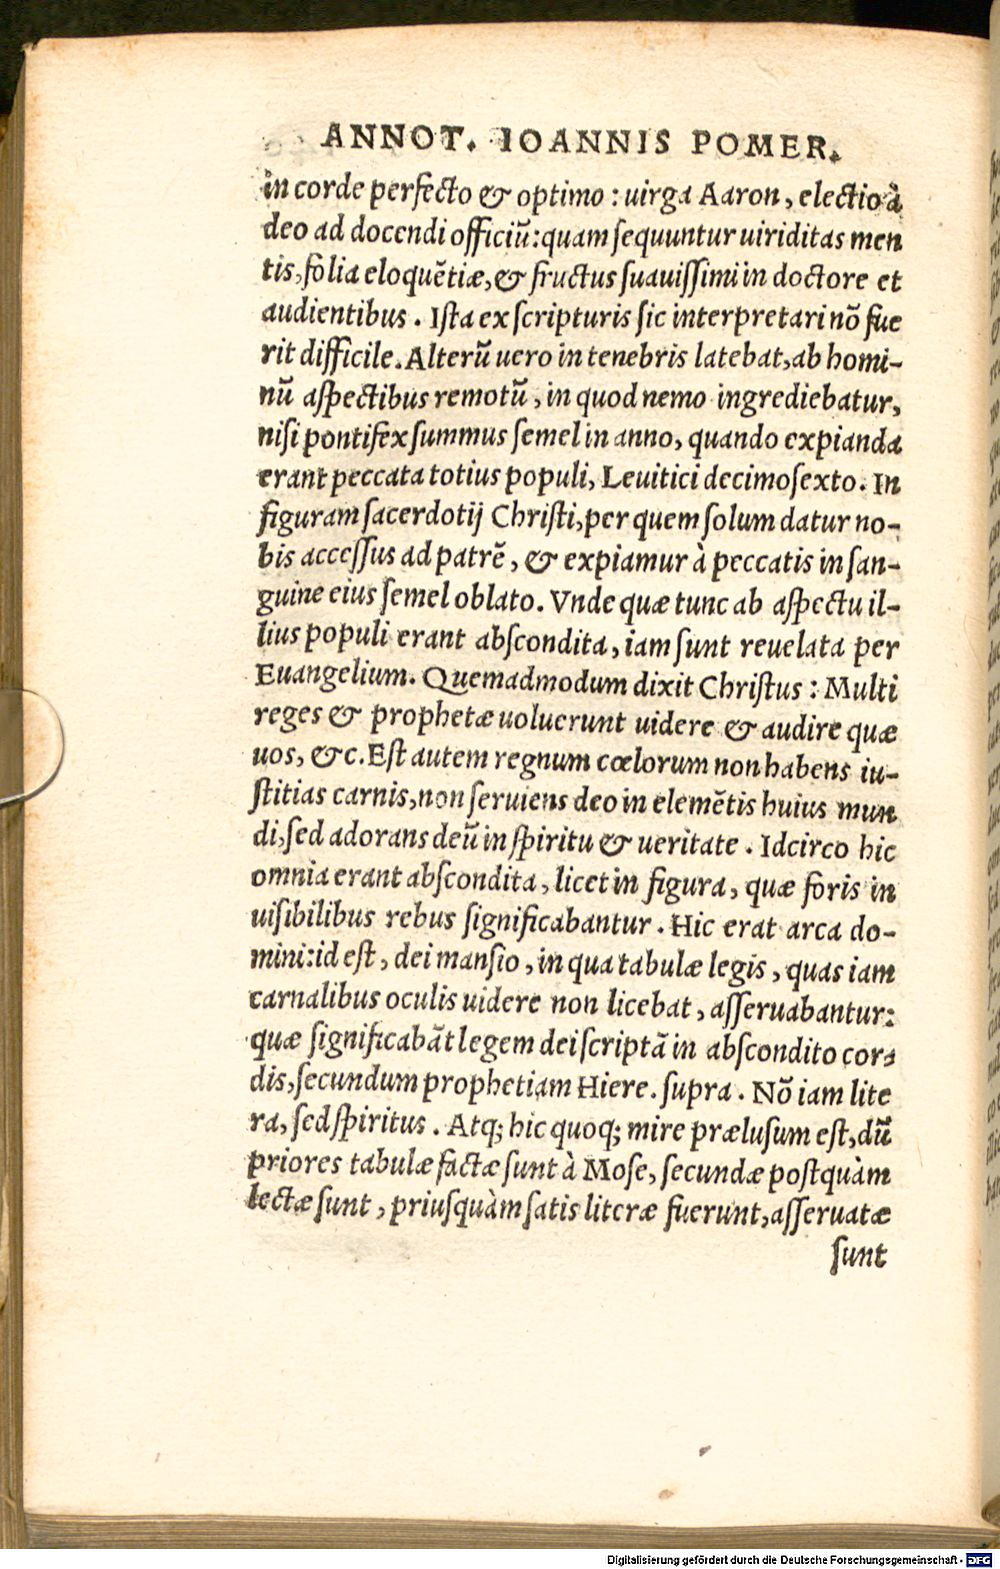 ANNOT. IOANNIS POMER.
in corde perfecto & optimo : uirga Aaron, electio à
deo ad docendi officiũ: quam sequuntur uiriditas men
tis, folia eloquẽtiæ, & fructus suauissimi in doctore et
audientibus. Ista ex scripturis sic interpretari nõ fue
rit difficile. Alterũ uero in tenebris latebat, ab homi-
nũ aspectibus remotũ, in quod nemo ingrediebatur,
nisi pontifex summus semel in anno, quando expianda
erant peccata totius populi, Leuitici decimosexto. In
figuram sacerdotij Christi, per quem solum datur no-
bis accessus ad patrẽ, & expiamur à peccatis in san-
guine eius semel oblato. Vnde quæ tunc ab aspectu il-
lius populi erant abscondita, iam sunt reuelata per
Euangelium. Quemadmodum dixit Christus : Multi
reges & prophetæ uoluerunt uidere & audire quæ
uos, &c. Est autem regnum cœlorum non habens iu-
stitias carnis, non seruiens deo in elemẽtis huius mun
di, sed adorans deũ in spiritu & ueritate. Idcirco hic
omnia erant abscondita, licet in figura, quæ foris in
uisibilibus rebus significabantur. Hic erat arca do-
mini: id est, dei mansio, in qua tabulæ legis, quas iam
carnalibus oculis uidere non licebat, asseruabantur:
quæ significabãt legem dei scriptã in abscondito cor-
dis, secundum prophetiam Hiere. supra. Nõ iam lite
ra, sed spiritus. Atq; hic quoq; mire prælusum est, dũ
priores tabulæ factæ sunt à Mose, secundæ postquàm
lectæ sunt, priusquàm satis literæ fuerunt, asseruatæ
sunt
Digitalisierung gefördert durch die Deutsche Forschungsgemeinschaft - DFG